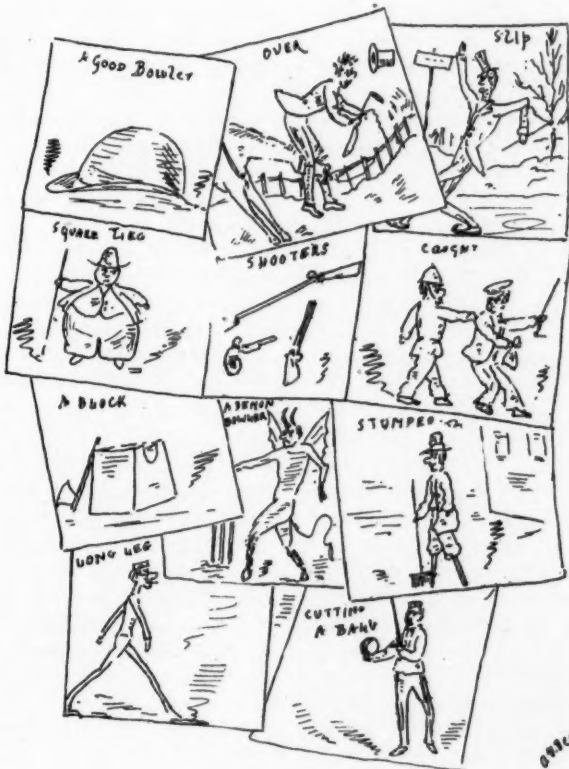 A GOOD BOWLER
OVER
SLIP
SQUARE LEG
SHOOTERS
CAUGHT
A BLOCK
A DEMON
BOWLER
STUMPED
LONG LEG
CUTTING
A BALL